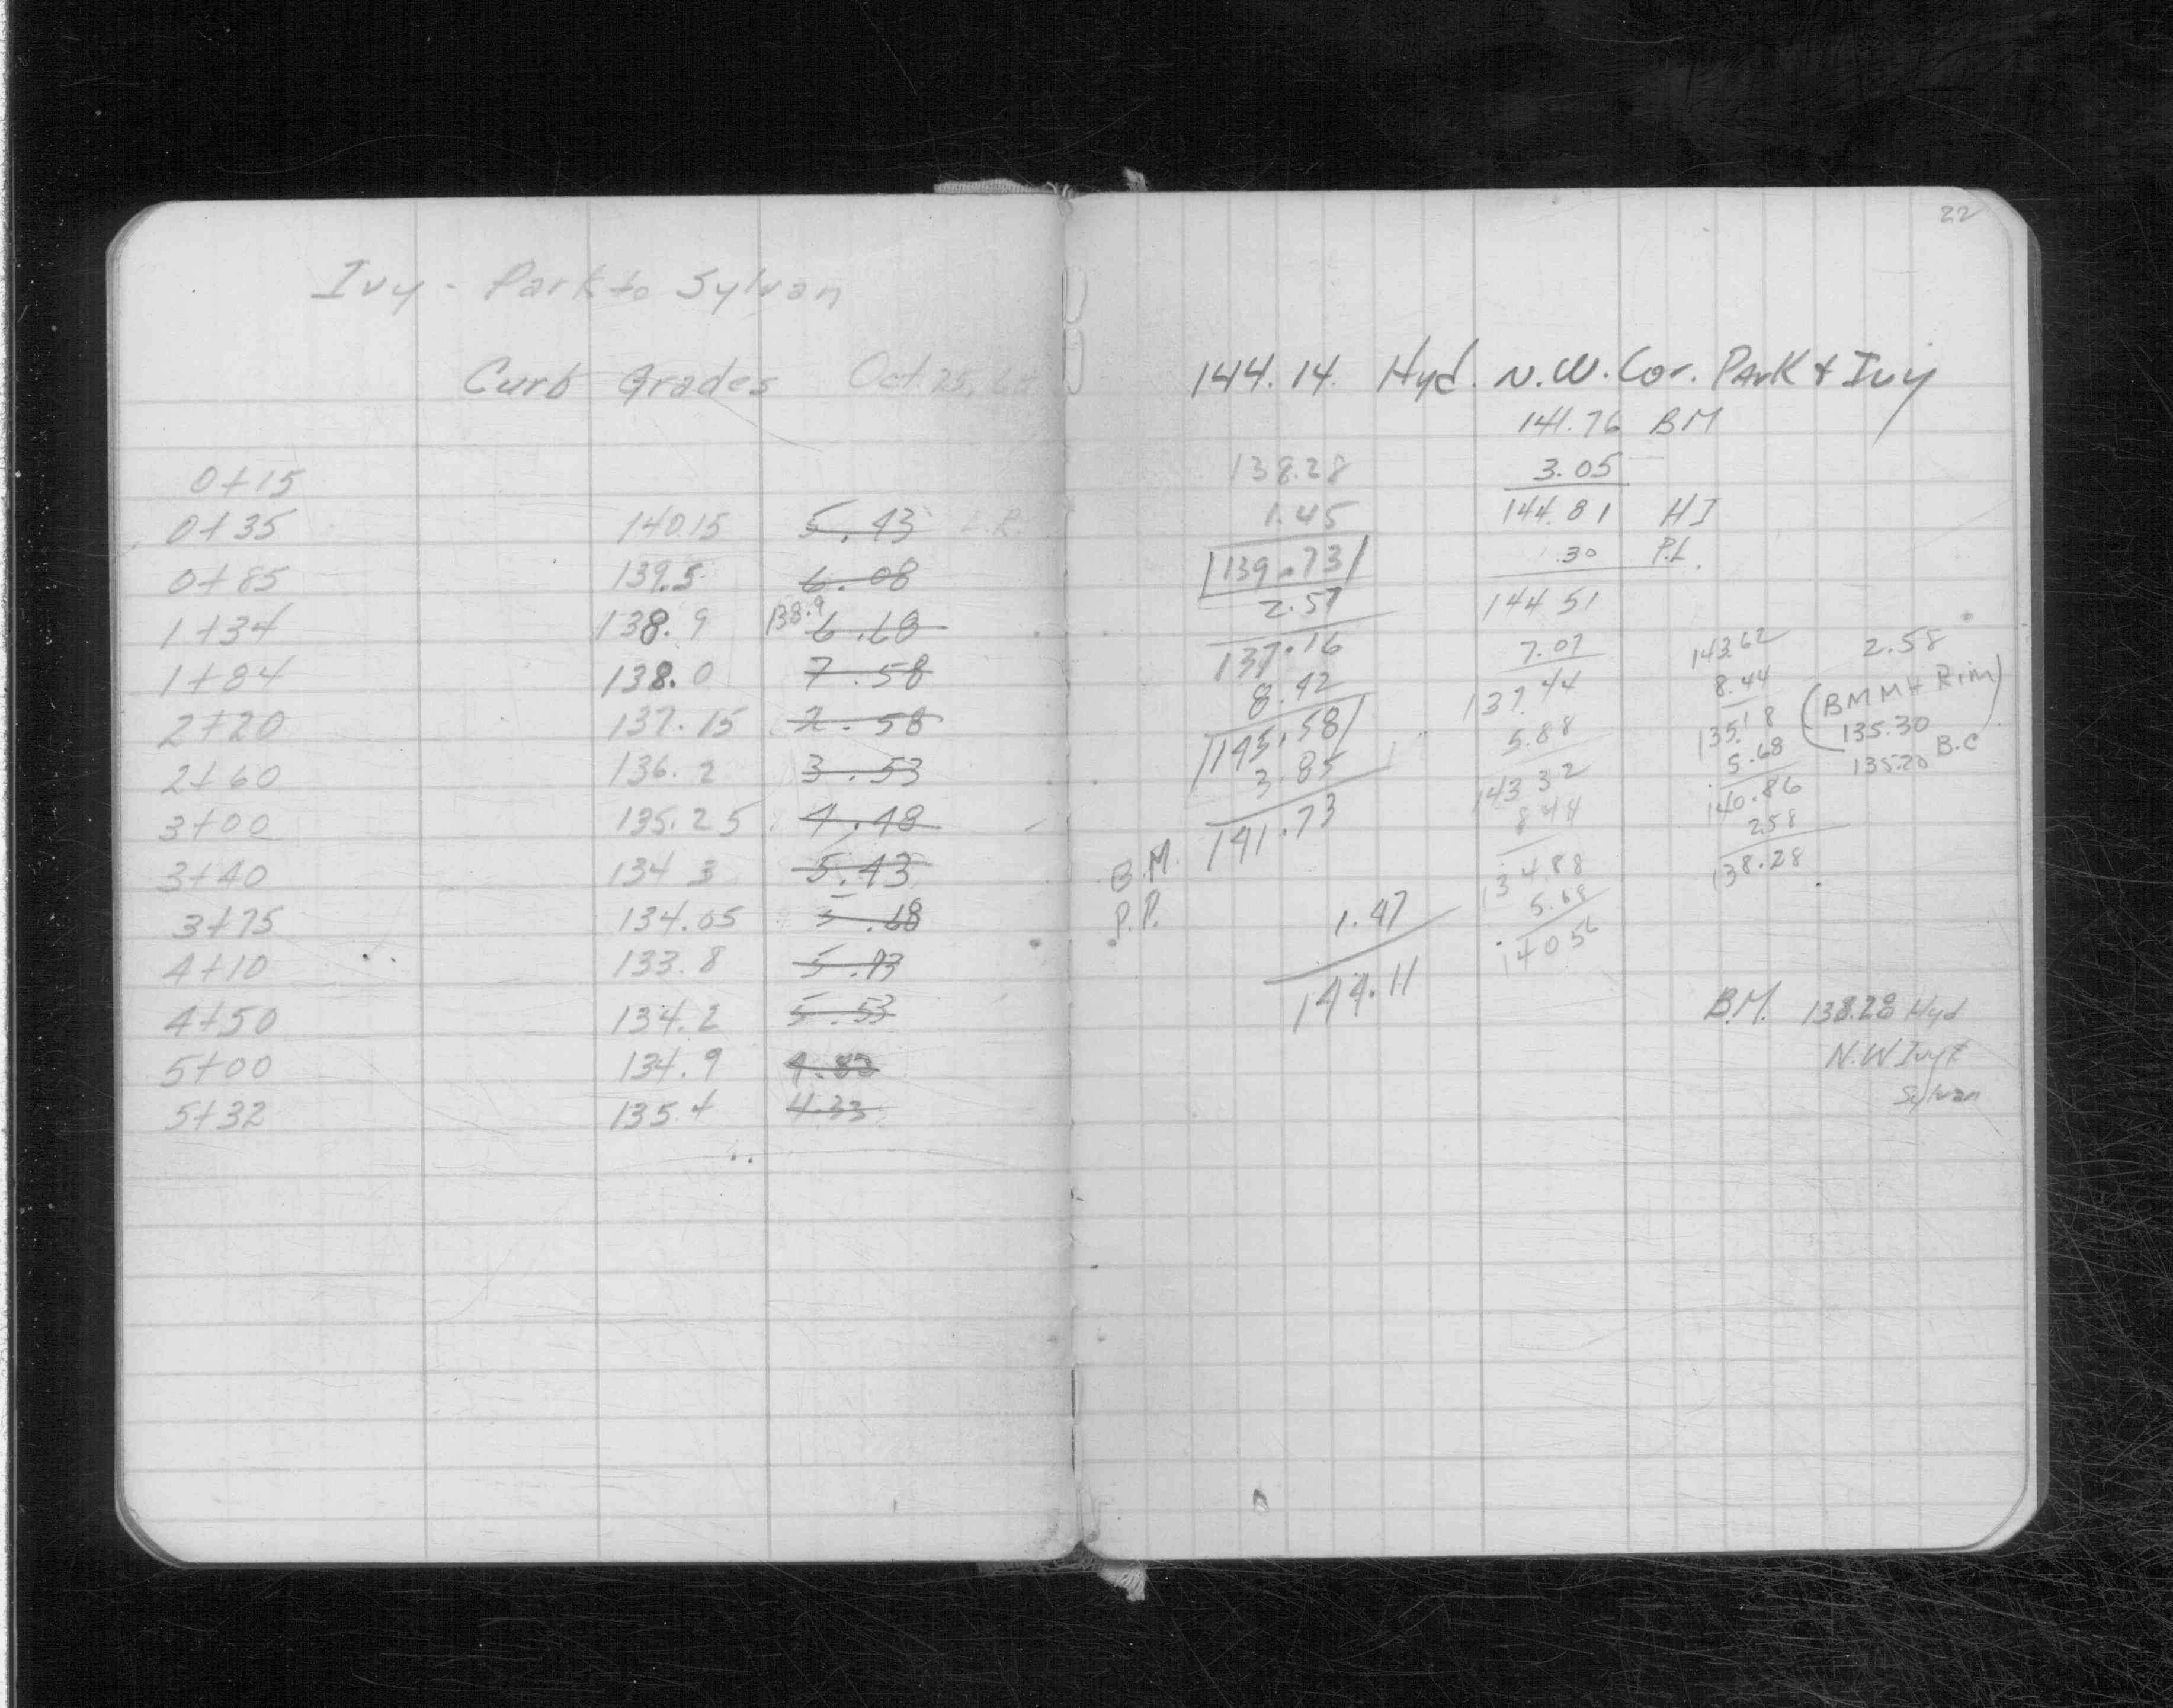 Ivy - Park to Sylvan
Curb Grades Oct. 25,
0+15
0+35 140.15 5.43
0+85 139.5 6.08
1+34 138.9 138.9 6.68
1+84 138.0 7.58
2+20 137.15 2.58
2+60 136.2 3.53
3+00 135.25 4.48
3+40 134.3 5.43
3+75 134.05 5.68
4+10 133.8 5.93
4+50 134.2 5.53
5+00 134.9 4.83
5+32 135.4 4.33
22
144.14 Hyd. N.W. Cor. Park & Ivy
141.76 BM
138.28 3.05
1.45 144.81 HI
139.73 .30 P.L.
2.57 144 51
137.16 7.07 143.62 2.58
8.42 137.44 8.44 (BM MH Rim)
145.58 5.88 135.18 135.30
3.85 143 32 5.68 135.20 B.C
B.M. 141.73 8 44 140.86
P.P. 134.88 2.58
1.47 5.68 138.28
144.11 140 56
B.M. 138.28 Hyd
N.W Ivy &
Sylvan